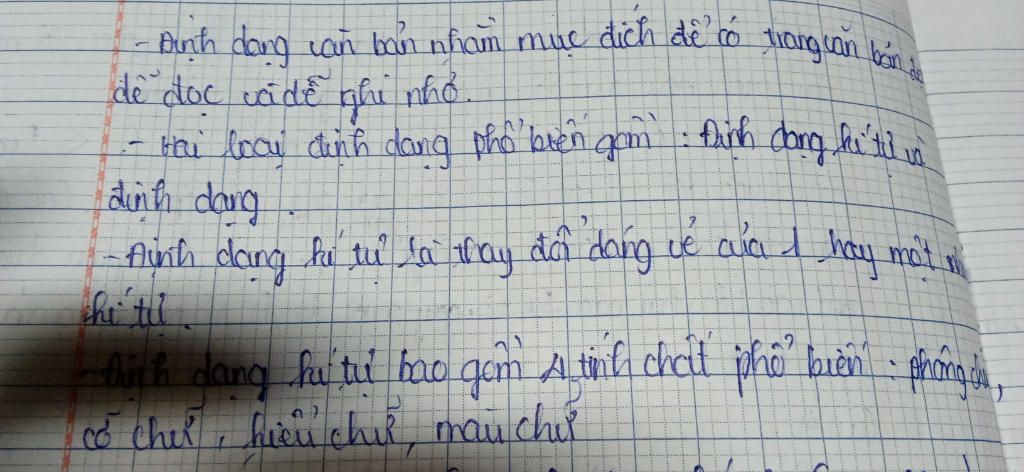 - Định dạng văn bản nhằm mục đích để có trang văn bản
dễ đọc và dễ ghi nhớ.
- Hai loại định dạng phổ biến gồm : Định dạng kí tự và
định dạng .
- Định dạng kí tự là thay đổi dáng vẻ của 1 hay một
kí tự.
- Định dạng kí tự bao gồm 4 tính chất phổ biến : phông chữ,
cỡ chữ, kiểu chữ, màu chữ